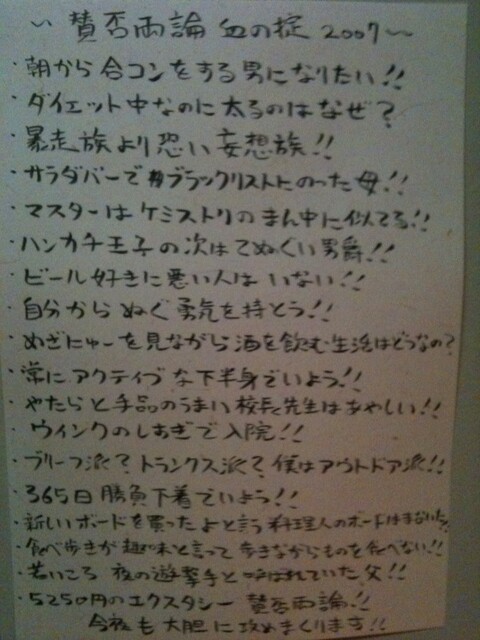 〜 賛否両論 血の掟 2007〜
・朝から合コンをする男になりたい!!
・ダイエット中なのに太るのはなぜ?
・暴走族より恐い妄想族!!
・サラダバーでブラックリストにのった母!!
・マスターはケミストリのまん中に似てる!!
・ハンカチ王子の次はてぬぐい男爵!!
・ビール好きに悪い人はいない!!
・自分からぬぐ勇気を持とう!!
・めざにゅーを見ながら酒を飲む生活はどうなの?
・常にアクティブな下半身でいよう!!
・やたらと手品のうまい校長先生はあやしい!!
・ウインクのしすぎで入院!!
・ブリーフ派?トランクス派?僕はアウトドア派!!
・365日勝負下着でいよう!!
・新しいボードを買ったよと言う料理人のボードはまないた!!
・食べ歩きが趣味と言って歩きながらものを食べない!!
・若いころ 夜の遊撃手と呼ばれていた父!!
・5250円のエクスタシー 賛否両論!!
今夜も大胆に攻めまくります!!